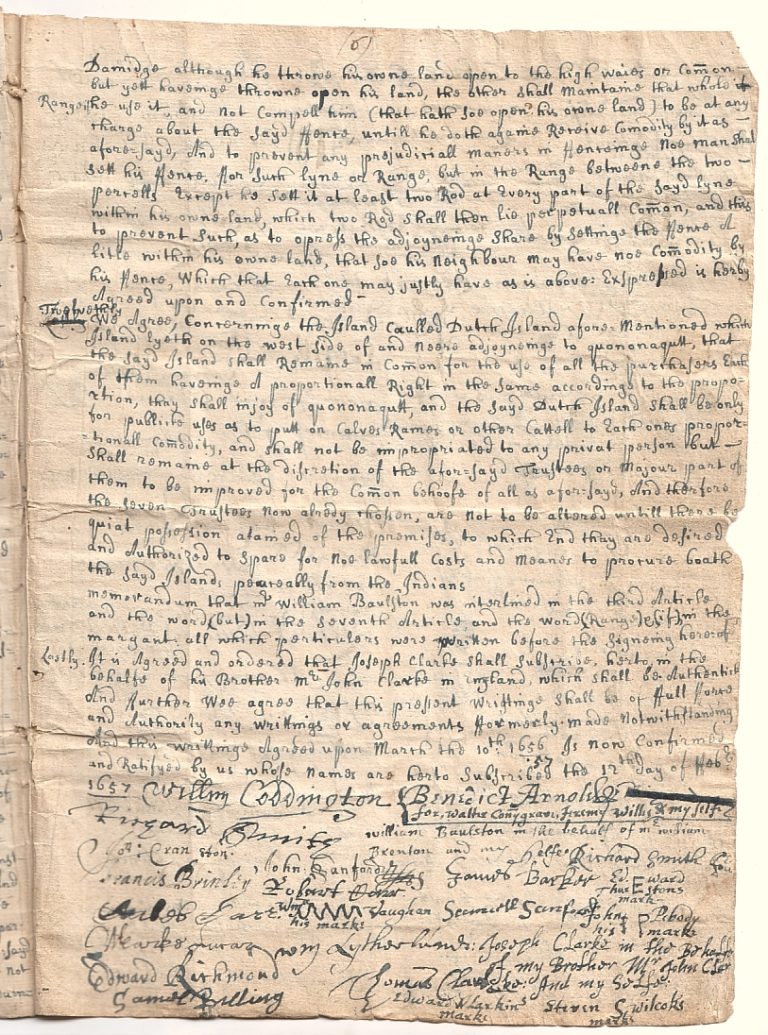 (6)
Damidge although he throwe his owne land open to the high waies or Comon
but yett haveinge throwne open his land, the other shall Maintaine that whole if
Range: he use it, and not Compell him (that hath soe open his owne land) to be at any
charge about the sayd ffence, untill he doth againe Receive Comodity by it as –
afore-sayd, And to prevent any prejudiciall maners in ffenceinge Noe man shal
sett his ffence, ffor such lyne or Range, but in the Range betweene the two –
percells Except he sett it at least two Rod at Every part of the sayd lyne
within his owne land, which two Rod shall then lie perpetuall Comon, and this
to prevent such, as to opress the adjoyneinge share by settinge the ffence A
litle within his owne land, that soe his Neighbour may have noe Comodity by
his ffence, Which that Each one may justly have as is above: Expressed is herby
Agreed upon and Confirmed –
Twelvethly We Agree, Concerninge the Island Caulled Dutch Island afore-Mentioned which
Island Lyeth on the west side of and Neere adjoyneinge to quononagutt, that
the sayd Island shall Remaine in Comon for the use of all the purchasers Each
of them haveinge A proportionall Right in the same accordinge to the propo-
rtion, thay shall injoy of quononagutt, and the sayd Dutch Island shall be only
for publicke uses as to putt on Calves Rames or other Cattell to Each ones propor-
tionall Comodity, and shall not be impropriated to any privat person but –
shall remaine at the discretion of the afor-sayd Trustees or Majour part of
them to be improved for the Comon behoofe of all as afor-sayd, And therfore
the seven Trustees now alredy chossen, are not to be altered untill there be
quiat possession atained of the premises, to which End thay are desired
and Authorized to spare for Noe lawfull Costs and Meanes to procure boath
the sayd Islands peaceably from the Indians
Memorandum that mr William Baulston was interlined in the third Article
and the word (but) in the seventh Article, and the word (Range) & (if) in the
margant. all which perticulers were written before the signeing hereof
Lastly. It is Agreed and ordered that Joseph Clarke shall subscribe, herto, in the
behalfe of his Brother mr John Clarke in ingland, which shall be Authentick
And ffurther Wee agree that this present Writtinge shall be of ffull fforce
and Authority any writtings or agreements fformerly made Notwithstanding
And this writtinge Agreed upon March the 10th 1656 Is now Confirmed
and Ratifyed by us whose names are herto Subscribed the 12th day of Feb
57
1657 Willm Coddington Benedict Arnold
for, Walter Connygrave, Jeremy Willis & my self
Richard Smith william Baulston in the behalf of mr william
Brenton and my selfe Richard Smith
Jo: Cranston John Sanford James Barker Edward
Francis Brinley Robert Thurstons
mark
Caleb Carr Wm Vaughan Samuell Sanford John Pebody
his marke his marke
wm Lytherland: Joseph Clarke in the Behalf
of my Brother Mr John Clarke
Edward Richmond Thomas Clarke: And my Selfe:
Samel Billing Edward Larkin Steven Wilcoks
marke marke